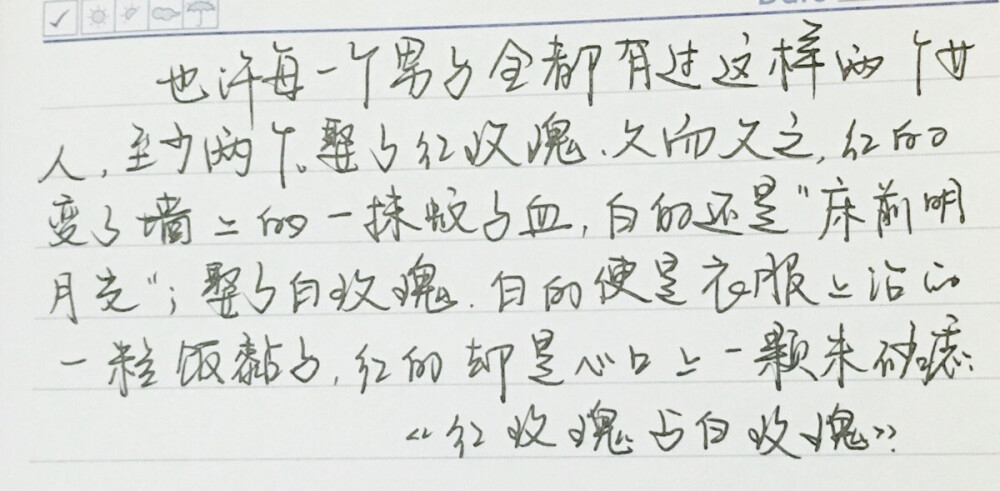 Date
也许每一个男子全都有过这样两个女
人,至少两个。娶了红玫瑰,久而久之,红的
变了墙上的一抹蚊子血,白的还是“床前明
月光”;娶了白玫瑰,白的便是衣服上沾的
一粒饭黏子,红的却是心口上一颗朱砂痣。
《红玫瑰与白玫瑰》